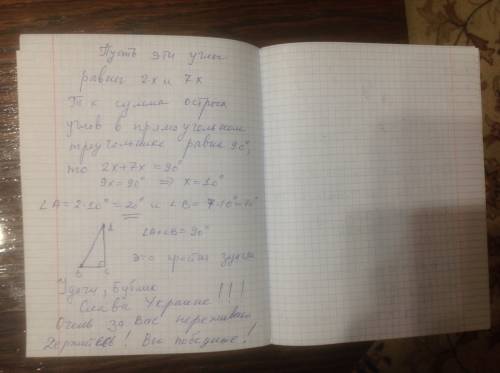 Пусть эти углы
равны 2х и 7х
Т к сумма острых
углов в прямоугольном
треугольнике равна 90°,
то 2х+7х=90°
9х=90° ⇒ х=10°
∠А=2·10°=20° и ∠В=7·10°=70°
А
В
С
∠А+∠В=90°
это простая задача
Удачи, Бублик
Слава Украине !!!
Очень за Вас переживаем
Держитесь! Вы победите!